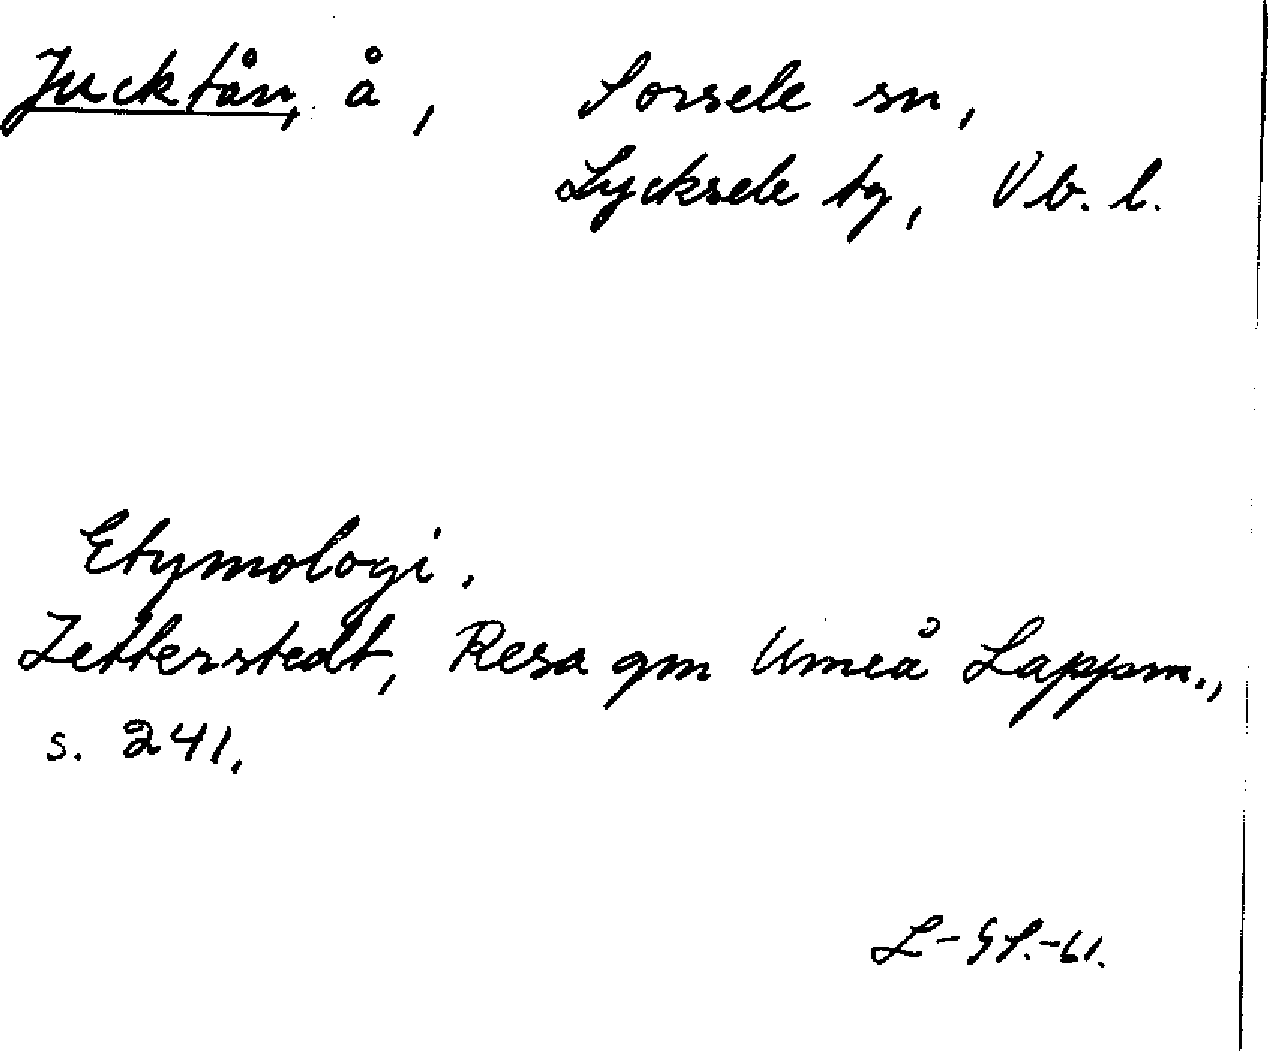 Jucktån, å, Sorsele sn,
Lycksele tg, Vb. l.
Etymologi.
Zetterstedt, Resa gm Umeå Lappm.,
s. 241.
L-GS.-61.